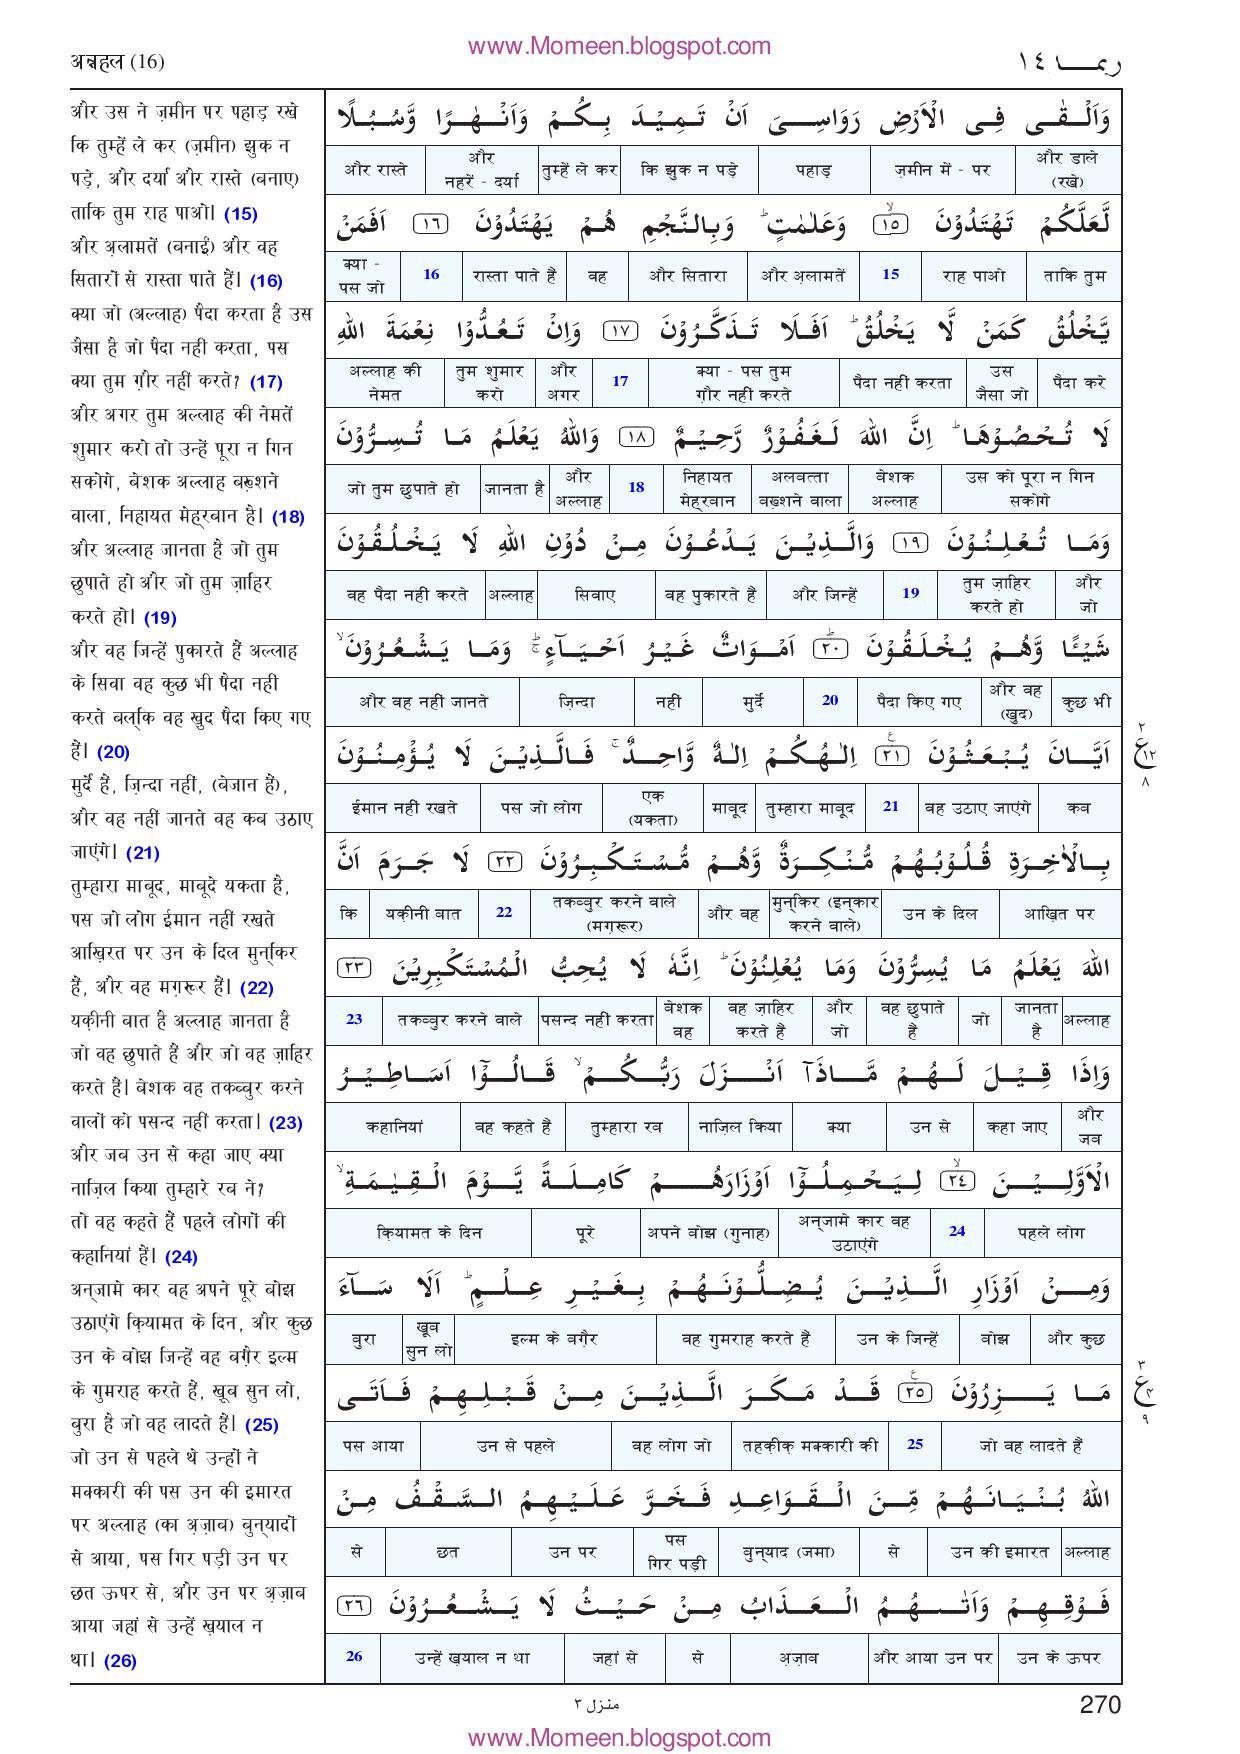 www.Momeen.blogspot.com
अन्नहल (16)
ربما ١٤
और उस ने ज़मीन पर पहाड़ रखे
कि तुम्हें ले कर (ज़मीन) झुक न
पड़े, और दर्या और रास्ते (बनाए)
ताकि तुम राह पाओ। (15)
और अ़लामतें (बनाईं) और वह
सितारों से रास्ता पाते हैं। (16)
क्या जो (अल्लाह) पैदा करता है उस
जैसा है जो पैदा नहीं करता, पस
क्या तुम ग़ौर नहीं करते? (17)
और अगर तुम अल्लाह की नेमतें
शुमार करो तो उन्हें पूरा न गिन
सकोगे, बेशक अल्लाह बख़्शने
वाला, निहायत मेह्रबान है। (18)
और अल्लाह जानता है जो तुम
छुपाते हो और जो तुम ज़ाहिर
करते हो। (19)
और वह जिन्हें पुकारते हैं अल्लाह
के सिवा वह कुछ भी पैदा नहीं
करते बल्कि वह खुद पैदा किए गए
हैं। (20)
मुर्दे हैं, ज़िन्दा नहीं, (बेजान हैं),
और वह नहीं जानते वह कब उठाए
जाएंगे। (21)
तुम्हारा माबूद, माबूदे यकता है,
पस जो लोग ईमान नहीं रखते
आख़िरत पर उन के दिल मुन्किर
हैं, और वह मग़रूर हैं। (22)
यक़ीनी बात है अल्लाह जानता है
जो वह छुपाते हैं और जो वह ज़ाहिर
करते हैं। बेशक वह तकब्बुर करने
वालों को पसन्द नहीं करता। (23)
और जब उन से कहा जाए क्या
नाज़िल किया तुम्हारे रब ने?
तो वह कहते हैं पहले लोगों की
कहानियां हैं। (24)
अन्जामे कार वह अपने पूरे बोझ
उठाएंगे क़ियामत के दिन, और कुछ
उन के बोझ जिन्हें वह बग़ैर इल्म
के गुमराह करते हैं, खूब सुन लो,
बुरा है जो वह लादते हैं। (25)
जो उन से पहले थे उन्हों ने
मक्कारी की पस उन की इमारत
पर अल्लाह (का अ़ज़ाब) बुन्यादों
से आया, पस गिर पड़ी उन पर
छत ऊपर से, और उन पर अ़ज़ाब
आया जहां से उन्हें ख़याल न
था। (26)
وَاَلْقٰى فِى الْاَرْضِ رَوَاسِىَ اَنْ تَمِيْدَ بِكُمْ وَاَنْهٰرًا وَّسُبُلًا
और डाले (रखे) ज़मीन में - पर पहाड़ कि झुक न पड़े तुम्हें ले कर और नहरें - दर्या और रास्ते
لَّعَلَّكُمْ تَهْتَدُوْنَ ١٥ۙ وَعَلٰمٰتٍ ؕ وَبِالنَّجْمِ هُمْ يَهْتَدُوْنَ ١٦ اَفَمَنْ
ताकि तुम राह पाओ 15 और अ़लामतें और सितारा वह रास्ता पाते हैं 16 क्या - पस जो
يَّخْلُقُ كَمَنْ لَّا يَخْلُقُ ؕ اَفَلَا تَذَكَّرُوْنَ ١٧ وَاِنْ تَعُدُّوْا نِعْمَةَ اللهِ
पैदा करे उस जैसा जो पैदा नहीं करता क्या - पस तुम ग़ौर नहीं करते 17 और अगर तुम शुमार करो अल्लाह की नेमत
لَا تُحْصُوْهَا ؕ اِنَّ اللهَ لَغَفُوْرٌ رَّحِيْمٌ ١٨ وَاللهُ يَعْلَمُ مَا تُسِرُّوْنَ
उस को पूरा न गिन सकोगे बेशक अल्लाह अलबत्ता बख़्शने वाला निहायत मेह्रबान 18 और अल्लाह जानता है जो तुम छुपाते हो
وَمَا تُعْلِنُوْنَ ١٩ وَالَّذِيْنَ يَدْعُوْنَ مِنْ دُوْنِ اللهِ لَا يَخْلُقُوْنَ
और जो तुम ज़ाहिर करते हो 19 और जिन्हें वह पुकारते हैं सिवाए अल्लाह वह पैदा नहीं करते
شَيْئًا وَّهُمْ يُخْلَقُوْنَ ٢٠ؕ اَمْوَاتٌ غَيْرُ اَحْيَآءٍ ۚ وَمَا يَشْعُرُوْنَ ۙ
कुछ भी और वह (खुद) पैदा किए गए 20 मुर्दे नहीं ज़िन्दा और वह नहीं जानते
اَيَّانَ يُبْعَثُوْنَ ٢١ع اِلٰهُكُمْ اِلٰهٌ وَّاحِدٌ ۚ فَالَّذِيْنَ لَا يُؤْمِنُوْنَ
٢ ع ١٢ ٨
कब वह उठाए जाएंगे 21 तुम्हारा माबूद माबूद एक (यकता) पस जो लोग ईमान नहीं रखते
بِالْاٰخِرَةِ قُلُوْبُهُمْ مُّنْكِرَةٌ وَّهُمْ مُّسْتَكْبِرُوْنَ ٢٢ لَا جَرَمَ اَنَّ
आख़िरत पर उन के दिल मुन्किर (इन्कार करने वाले) और वह तकब्बुर करने वाले (मग़रूर) 22 यक़ीनी बात कि
اللهَ يَعْلَمُ مَا يُسِرُّوْنَ وَمَا يُعْلِنُوْنَ ؕ اِنَّهٗ لَا يُحِبُّ الْمُسْتَكْبِرِيْنَ ٢٣
अल्लाह जानता है जो वह छुपाते हैं और जो वह ज़ाहिर करते हैं बेशक वह पसन्द नहीं करता तकब्बुर करने वाले 23
وَاِذَا قِيْلَ لَهُمْ مَّاذَآ اَنْزَلَ رَبُّكُمْ ۙ قَالُوْٓا اَسَاطِيْرُ
और जब कहा जाए उन से क्या नाज़िल किया तुम्हारा रब वह कहते हैं कहानियां
الْاَوَّلِيْنَ ٢٤ۙ لِيَحْمِلُوْٓا اَوْزَارَهُمْ كَامِلَةً يَّوْمَ الْقِيٰمَةِ ۙ
पहले लोग 24 अन्जामे कार वह उठाएंगे अपने बोझ (गुनाह) पूरे क़ियामत के दिन
وَمِنْ اَوْزَارِ الَّذِيْنَ يُضِلُّوْنَهُمْ بِغَيْرِ عِلْمٍ ؕ اَلَا سَآءَ
और कुछ बोझ उन के जिन्हें वह गुमराह करते हैं इल्म के बग़ैर खूब सुन लो बुरा
مَا يَزِرُوْنَ ٢٥ع قَدْ مَكَرَ الَّذِيْنَ مِنْ قَبْلِهِمْ فَاَتَى
٣ ع ٤ ٩
जो वह लादते हैं 25 तहक़ीक़ मक्कारी की वह लोग जो उन से पहले पस आया
اللهُ بُنْيَانَهُمْ مِّنَ الْقَوَاعِدِ فَخَرَّ عَلَيْهِمُ السَّقْفُ مِنْ
अल्लाह उन की इमारत से बुन्याद (जमा) पस गिर पड़ी उन पर छत से
فَوْقِهِمْ وَاَتٰىهُمُ الْعَذَابُ مِنْ حَيْثُ لَا يَشْعُرُوْنَ ٢٦
उन के ऊपर और आया उन पर अ़ज़ाब से जहां से उन्हें ख़याल न था 26
منزل ٣
270
www.Momeen.blogspot.com